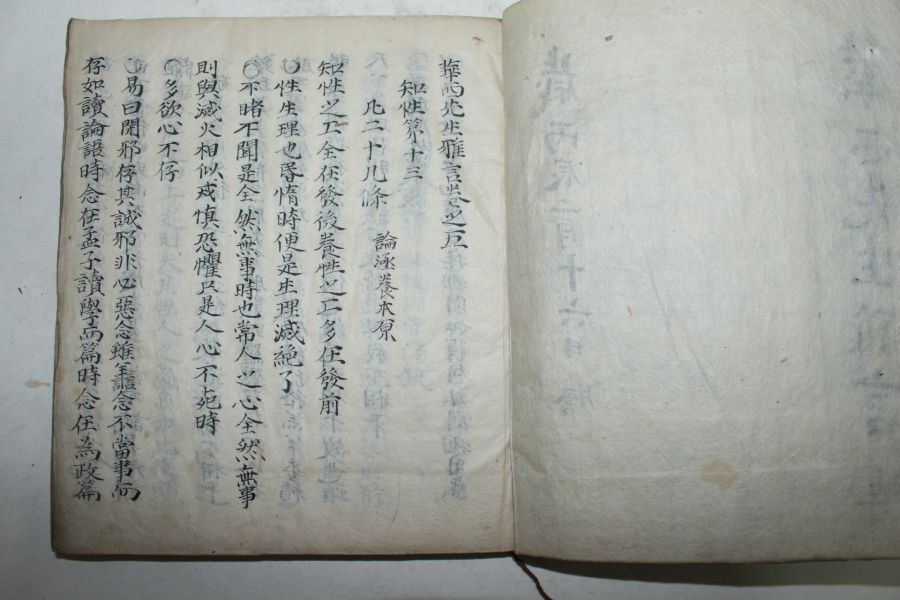 華西先生雅言卷之五
知性第十三
凡二十九條 論涵養本原
知性之工全在發後養性之工多在發前
○性生理也昏惰時便是生理滅絶了
○不睹不聞是全然無事時也常人之心全然無事
則與滅火相似戒愼恐懼只是人心不死時
○多欲心不存
○易曰閑邪存其誠邪非必惡念雖善念不當事而
存如讀論語時念在孟子讀學而篇時念在為政篇